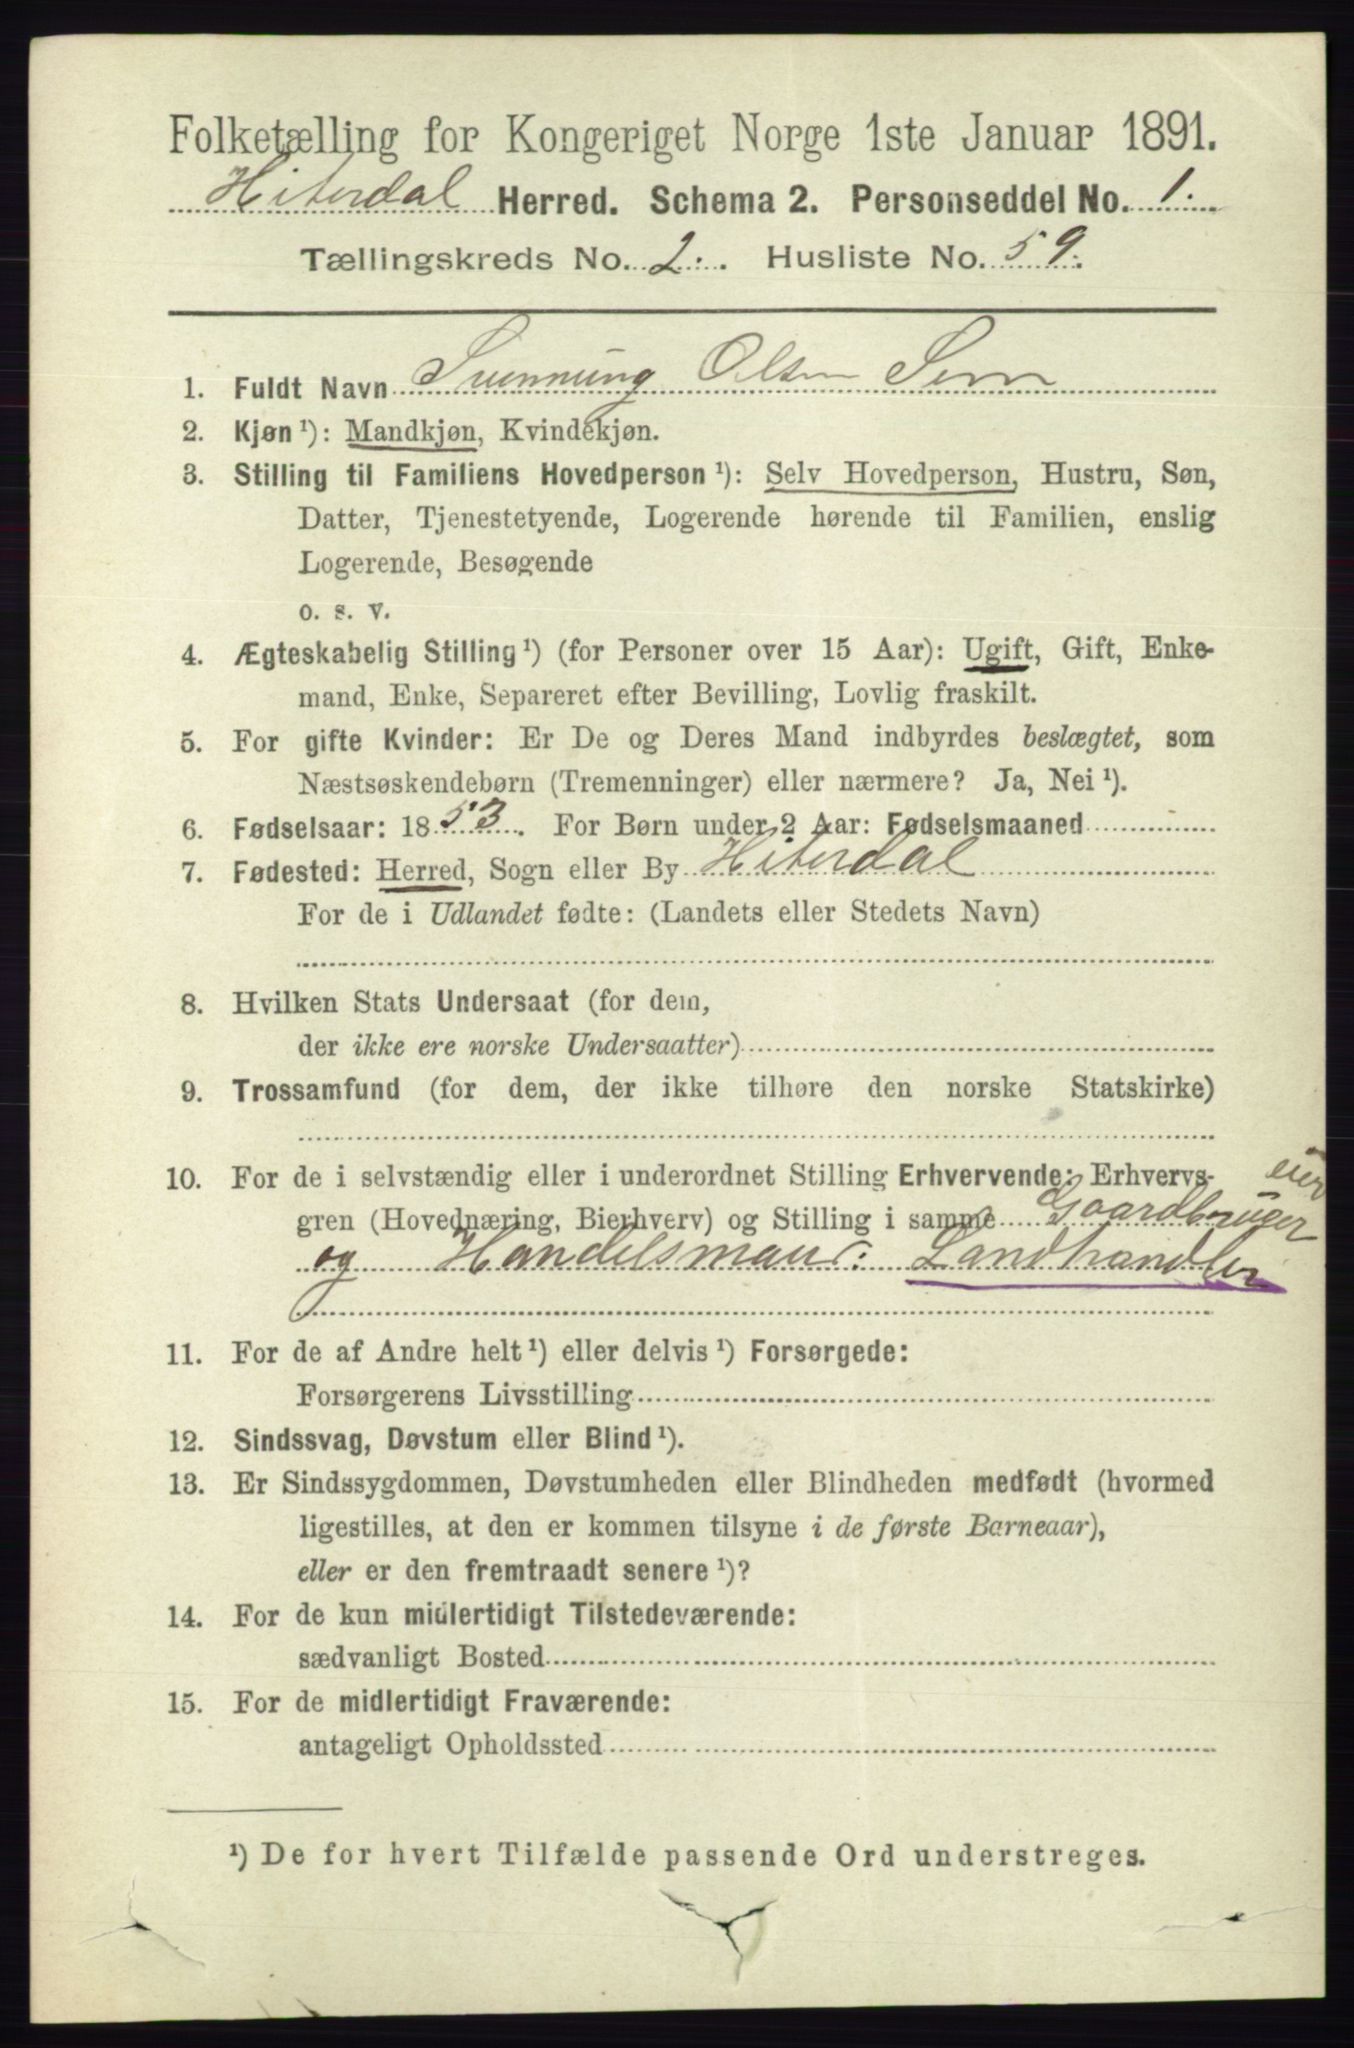 Folketælling for Kongeriget Norge 1ste Januar 1891.
Hiterdal Herred. Schema 2. Personseddel No. 1.
Tællingskreds No. 2. Husliste No. 59.
1. Fuldt Navn Svennung Olsen Sem
2. Kjøn ¹): Mandkjøn, Kvindekjøn.
3. Stilling til Familiens Hovedperson ¹): Selv Hovedperson, Hustru, Søn,
Datter, Tjenestetyende, Logerende hørende til Familien, enslig
Logerende, Besøgende
o. s. v.
4. Ægteskabelig Stilling ¹) (for Personer over 15 Aar): Ugift, Gift, Enke-
mand, Enke, Separeret efter Bevilling, Lovlig fraskilt.
5. For gifte Kvinder: Er De og Deres Mand indbyrdes beslægtet, som
Næstsøskendebørn (Tremenninger) eller nærmere? Ja, Nei ¹).
6. Fødselsaar: 1853. For Børn under 2 Aar: Fødselsmaaned
7. Fødested: Herred, Sogn eller By Hiterdal
For de i Udlandet fødte: (Landets eller Stedets Navn)
8. Hvilken Stats Undersaat (for dem,
der ikke ere norske Undersaatter)
9. Trossamfund (for dem, der ikke tilhøre den norske Statskirke)
10. For de i selvstændig eller i underordnet Stilling Erhvervende: Erhvervs- eier
gren (Hovednæring, Bierhverv) og Stilling i samme Gaardbruger
og Handelsmand: Landhandler
11. For de af Andre helt ¹) eller delvis ¹) Forsørgede:
Forsørgerens Livsstilling
12. Sindssvag, Døvstum eller Blind ¹).
13. Er Sindssygdommen, Døvstumheden eller Blindheden medfødt (hvormed
ligestilles, at den er kommen tilsyne i de første Barneaar),
eller er den fremtraadt senere ¹)?
14. For de kun midlertidigt Tilstedeværende:
sædvanligt Bosted
15. For de midlertidigt Fraværende:
antageligt Opholdssted
¹) De for hvert Tilfælde passende Ord understreges.